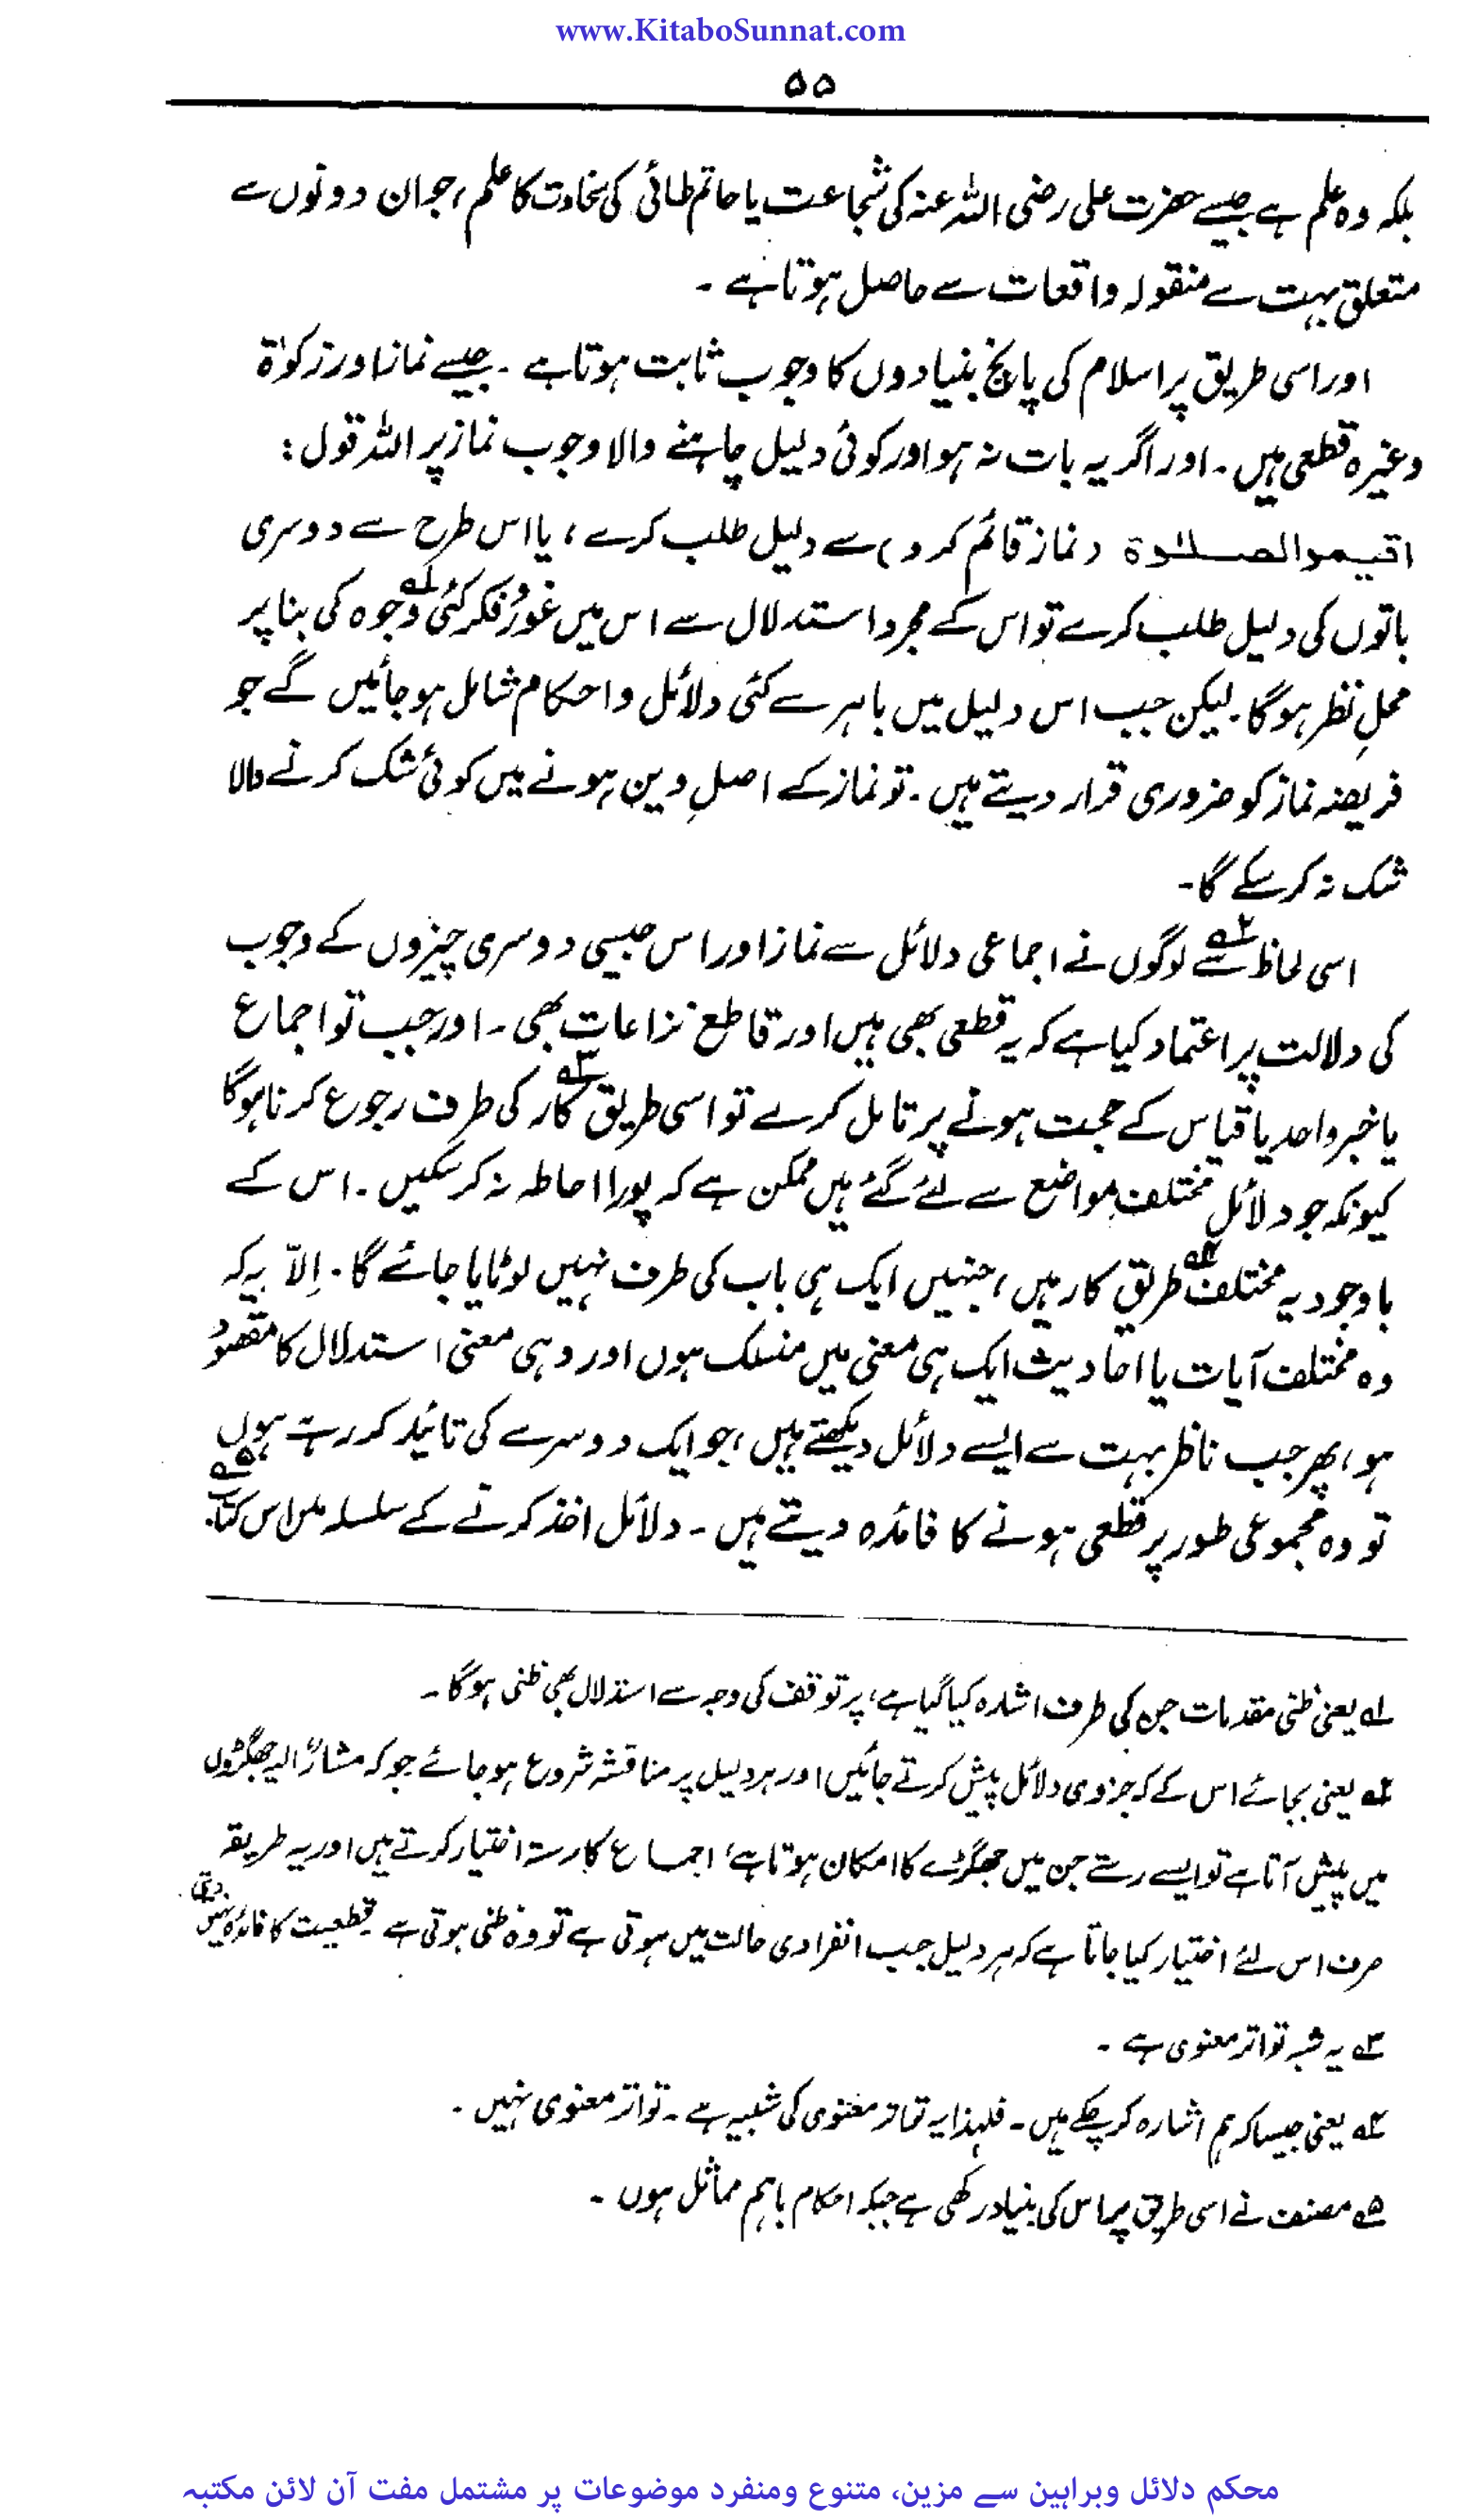 www.KitaboSunnat.com
۵۵
بلکہ وہ علم ہے جیسے حضرت علی رضی اللہ عنہ کی شجاعت یا حاتم طائی کی سخاوت کا علم، جو ان دونوں سے
متعلق بہت سے منقولہ واقعات سے حاصل ہوتا ہے ۔
اور اسی طریق پر اسلام کی پانچ بنیادوں کا وجوب ثابت ہوتا ہے ۔ جیسے نماز اور زکوٰۃ
وغیرہ قطعی ہیں ۔ اور اگر یہ بات نہ ہو اور کوئی دلیل چاہنے والا وجوب نماز پر اللہ قول :
اقیموا الصلاوۃ (نماز قائم کرو) سے دلیل طلب کرے، یا اس طرح سے دوسری
باتوں کی دلیل طلب کرے تو اس کے مجرد استدلال سے اس میں غور و فکر کئی وجوہ لہ کی بنا پر
محلِ نظر ہوگا۔ لیکن جب اس دلیل میں باہر سے کئی دلائل و احکام شامل ہو جائیں گے جو
فریضہ نماز کو ضروری قرار دیتے ہیں ۔ تو نماز کے اصلِ دین ہونے میں کوئی شک کرنے والا
شک نہ کر سکے گا۔
اسی لحاظ سے ۲ہ لوگوں نے اجماعی دلائل سے نماز اور اس جیسی دوسری چیزوں کے وجوب
کی دلالت پر اعتماد کیا ہے کہ یہ قطعی بھی ہیں اور قاطع نزاعات بھی ۔ اور جب تو اجماع
یا خبر واحد یا قیاس کے حجت ہونے پر تامل کرے تو اسی طریق کار ۳ہ کی طرف رجوع کرنا ہوگا
کیونکہ جو دلائل مختلف مواضع سے لئے گئے ہیں ممکن ہے کہ پورا احاطہ نہ کر سکیں ۔ اس کے
باوجود یہ مختلف ۴ہ طریق کار ہیں، جنہیں ایک ہی باب کی طرف نہیں لوٹایا جائے گا۔ اِلاّ یہ کہ
وہ مختلف آیات یا احادیث ایک ہی معنی میں منسلک ہوں اور وہی معنی استدلال کا مقصود
ہو، پھر جب ناظر بہت سے ایسے دلائل دیکھتے ہیں، جو ایک دوسرے کی تائید کر رہے ہوں
تو وہ مجموعی طور پر قطعی ہونے کا فائدہ دیتے ہیں ۔ دلائل اخذ کرنے کے سلسلہ میں اس کتاب ۵ہ
لہ یعنی ظنی مقدمات جن کی طرف اشارہ کیا گیا ہے، پر توقف کی وجہ سے استدلال بھی ظنی ہوگا ۔
۲ہ یعنی بجائے اس کے کہ جزوی دلائل پیش کرتے جائیں اور ہر دلیل پر مناقشہ شروع ہو جائے جو کہ مشارٌ الیہ جھگڑوں
میں پیش آتا ہے تو ایسے رستے جن میں جھگڑے کا امکان ہوتا ہے، اجماع کا رستہ اختیار کرتے ہیں اور یہ طریقہ
صرف اس لئے اختیار کیا جاتا ہے کہ ہر دلیل جب انفرادی حالت میں ہوتی ہے تو وہ ظنی ہوتی ہے قطعیت کا فائدہ نہیں دیتی۔
۳ہ یہ شبہ تواتر معنوی ہے ۔
۴ہ یعنی جیسا کہ ہم اشارہ کر چکے ہیں ۔ فلہذا یہ تواتر معنوی کی شبیہ ہے ۔ تواتر معنوی نہیں ۔
۵ہ مصنف نے اسی طریق پر اس کی بنیاد رکھی ہے جبکہ احکام باہم مماثل ہوں ۔
محکم دلائل وبراہین سے مزین، متنوع ومنفرد موضوعات پر مشتمل مفت آن لائن مکتبہ